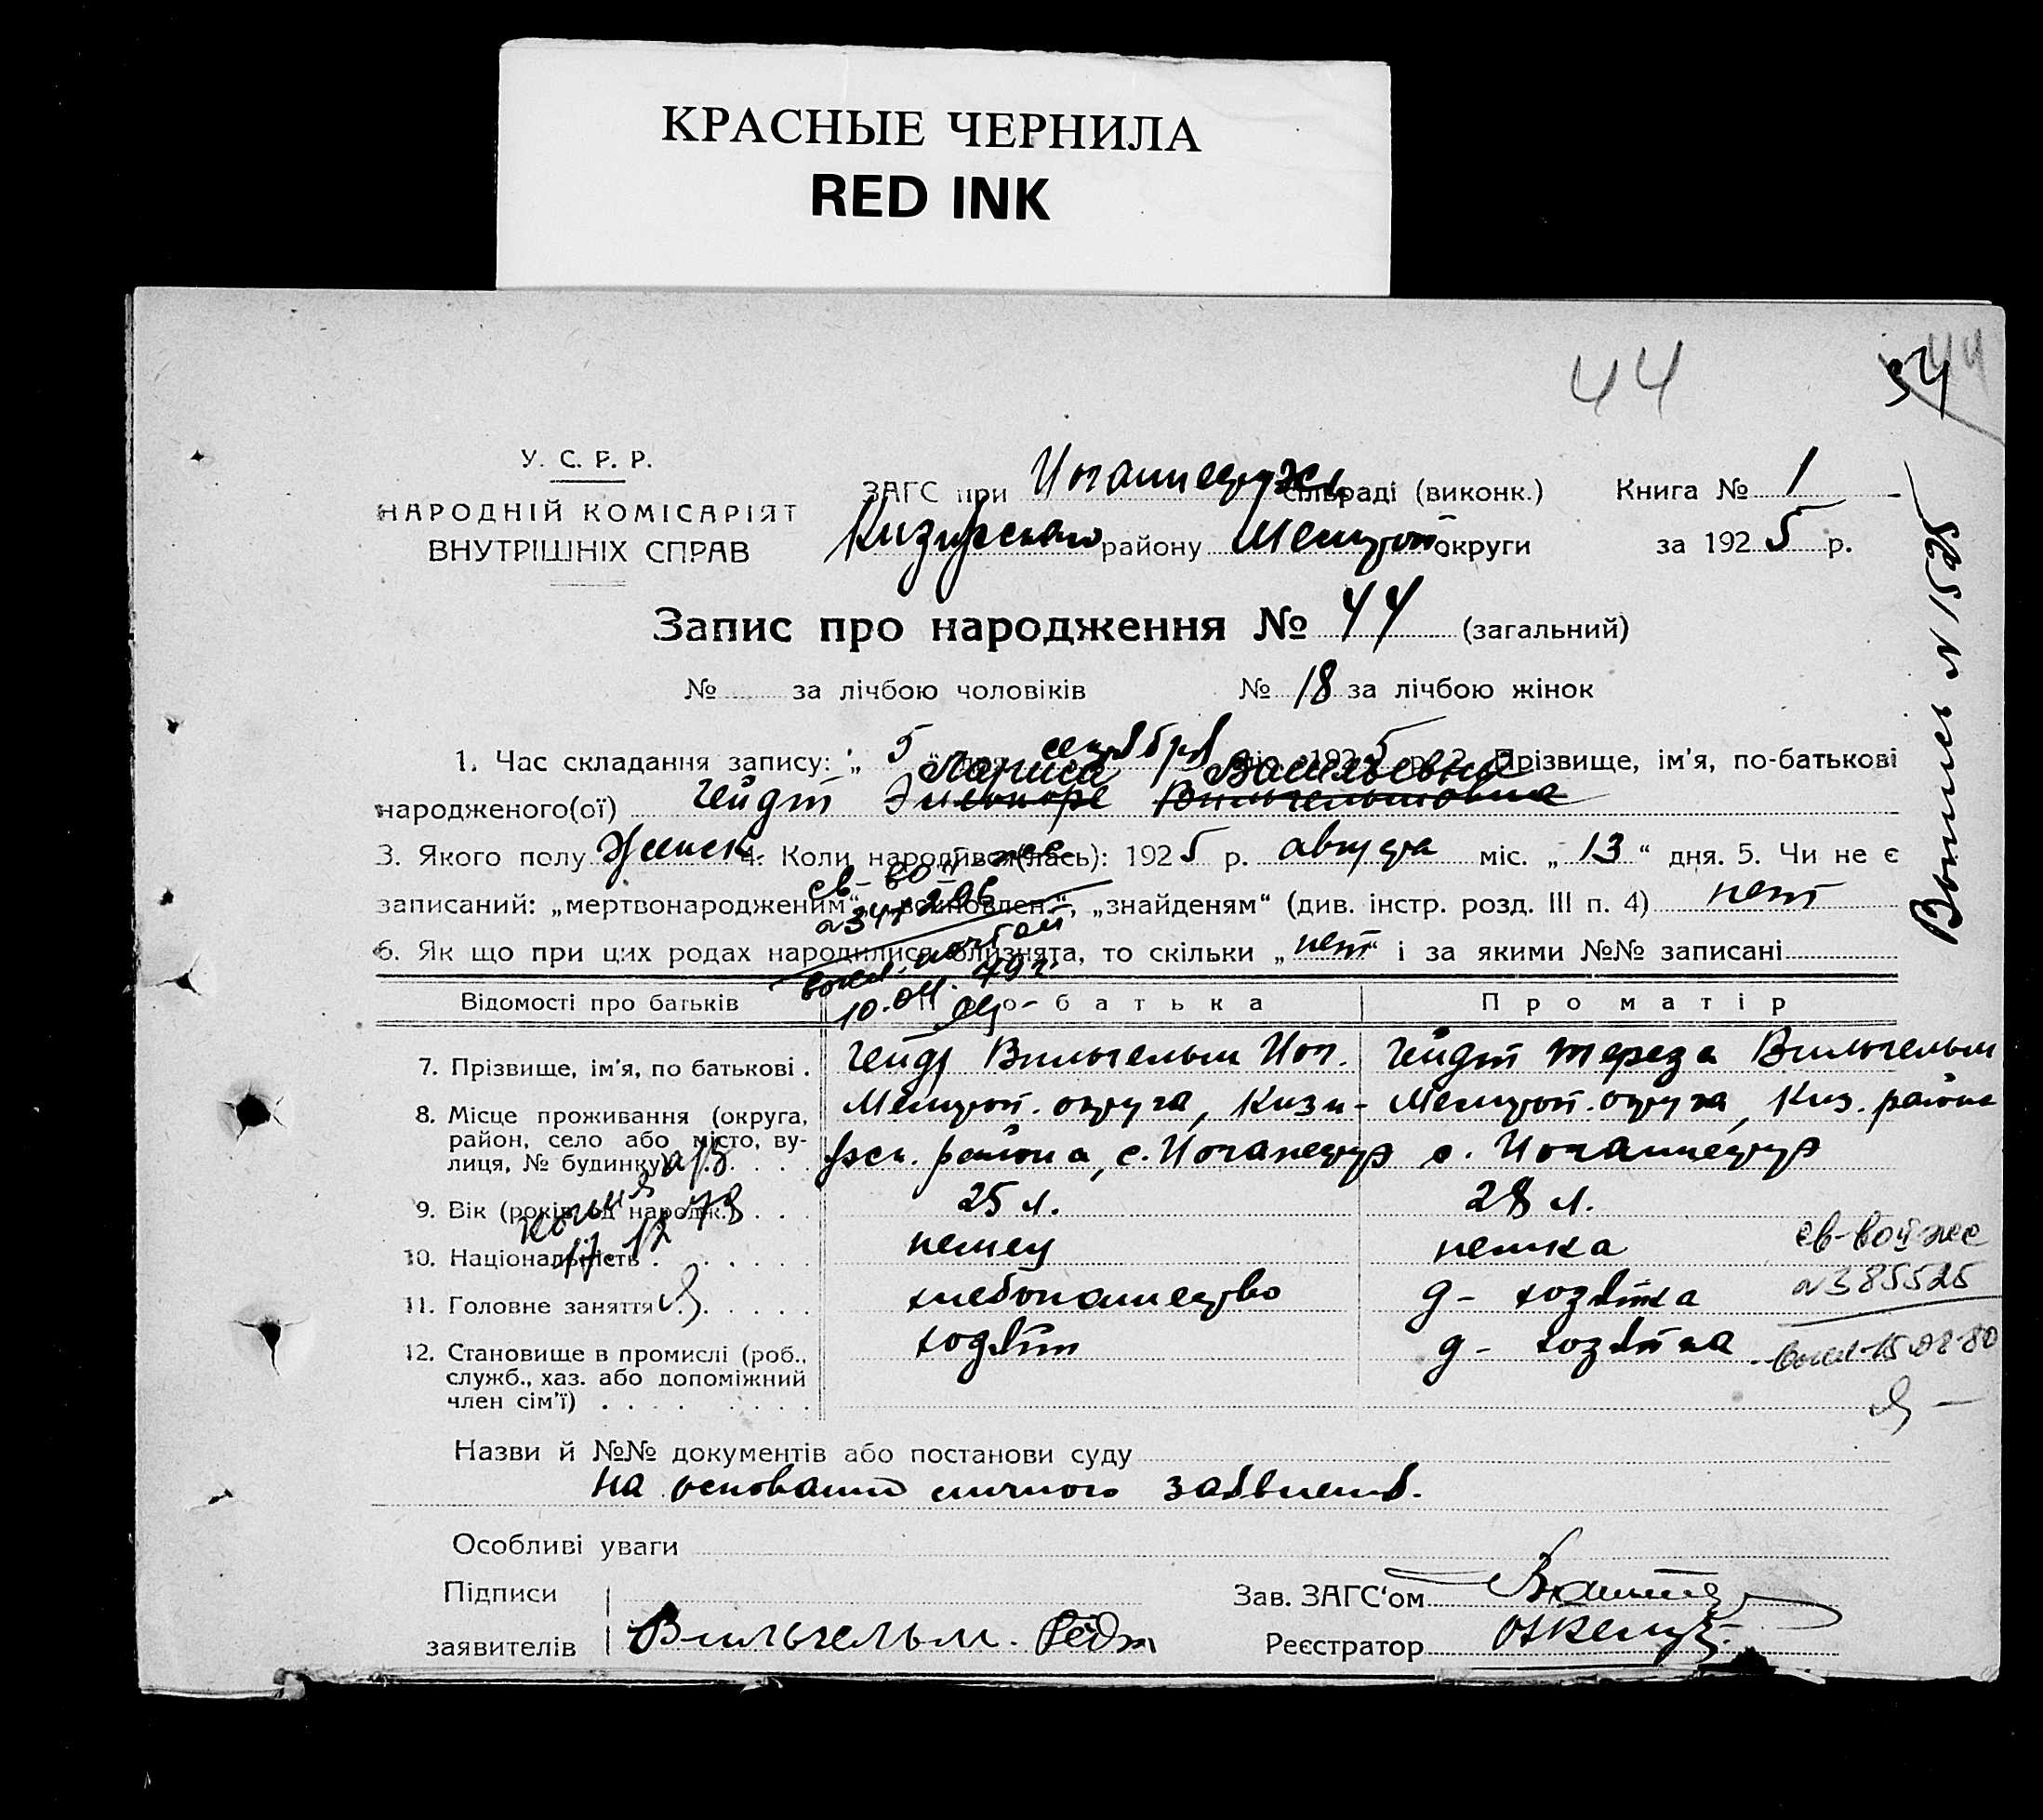 КРАСНЫЕ ЧЕРНИЛА
RED INK
44
У. С. Р. Р.
НАРОДНІЙ КОМІСАРІЯТ
ВНУТРІШНІХ СПРАВ
ЗАГС при сільраді (виконк.)
Книга № 1
району Мелитоп округи
за 1925 р.
Запис про народження № 44 (загальний)
№ за лічбою чоловіків № 18 за лічбою жінок
1. Час складання запису: „ 5 сентября 1925 р. 2. Прізвище, ім'я, по-батькові
Лариса Васильевна
народженого(ої) Гейдт Элеонора Вильгельмовна
3. Якого полу Женск. 4. Коли народився(лась): 1925 р. августа міс. „ 13 “ дня. 5. Чи не є
записаний: „мертвонародженим“, „знайденям“ (див. інстр. розд. III п. 4) нет
6. Як що при цих родах народилися близнята, то скільки „ нет “ і за якими №№ записані
Выпись N 1525
Відомості про батьків
Про батька
Про матір
7. Прізвище, ім'я, по батькові .
Гейдт Вильгельм Иог.
Гейдт Тереза Вильгельм
8. Місце проживання (округа, район, село або місто, вулиця, № будинку)
Мелитоп. округа, Кизи-
рск. района, с.
Мелитоп. округа, Киз. района
с.
9. Вік (років од народж.) . . .
25 л.
28 л.
10. Національність . . . . .
немец
немка
11. Головне заняття . . . . .
хлебопашество
д- хозяйка
12. Становище в промислі (роб., служб., хаз. або допоміжний член сім'ї) . . . . . . . .
хозяин
д- хозяйка
св-во
N 385525
15-02-80
10.04.79г
17.12.78
Назви й №№ документів або постанови суду
на основании личного заявления.
Особливі уваги
Підписи
заявителів
Вильгельм. Гейдт
Зав. ЗАГС'ом
Реєстратор